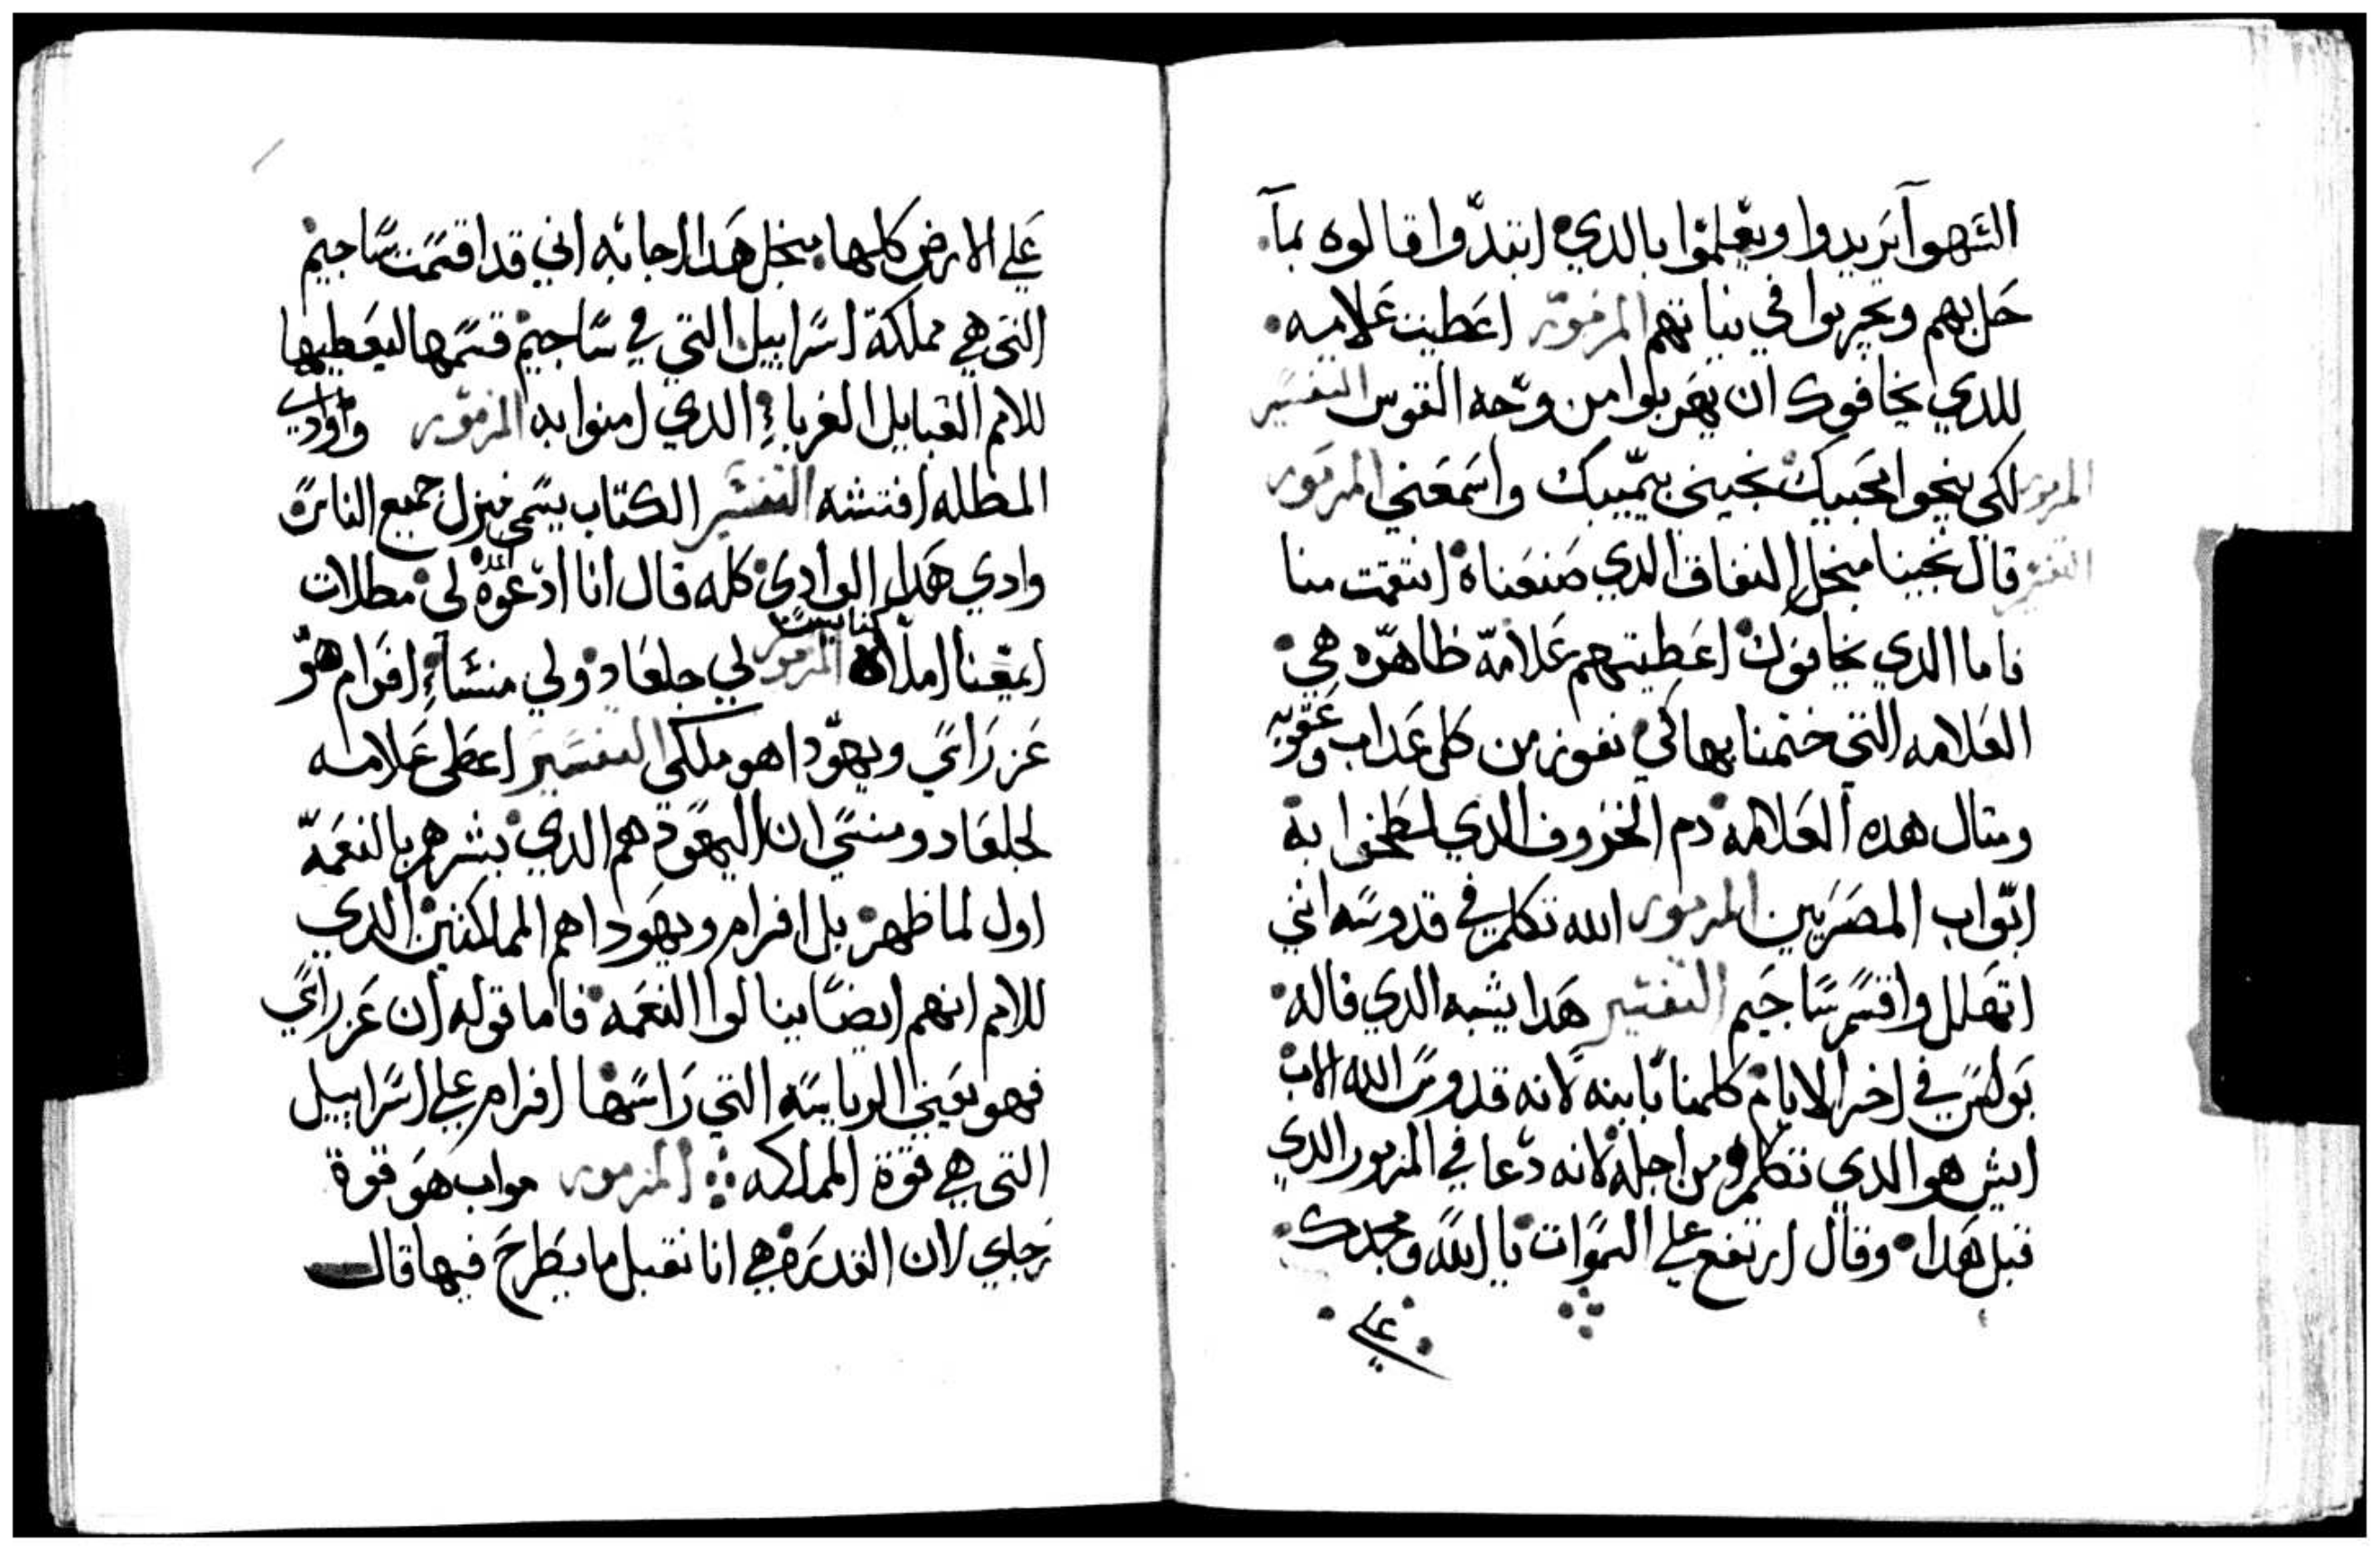 الشهوا يريدوا ويعلموا بالدي ابتدوا قالوه بما
حل بهم ويجربوا في بياتهم المزمور اعطيت علامه
للدي يخافوك ان يهربوا من وجه القوس التفسير
المزمور لكي ينجوا محبيك نجيني بيمينك واسمعني المزمور
التفسير قال نجينا منجل النفاق الدي صنعناه انتقمت منا
فاما الدي يخافوك اعطيتهم علامة ظاهره هي
العلامه التي ختمنا بها كي نفوز من كل عداب وعقوبه
ومتال هده العلامة دم الخروف الدي لطخوا به
ابواب المصريين المزمور الله تكلم في قدوسه انني
اتهلل واقسم ساجيم التفسير هدا يشبه الدي قاله
بولس في اخر الايام كلمنا بابنه لانه قدوس الله الاب
ايش هو الدي تكلم من اجله لانه دعا في المزمور الدي
قبل هدا وقال ارتفع على السموات يا الله ومجدك
على
على الارض كلها منجل هدا اجابه اني قد اقسمت ساجيم
التي هي مملكة اسراييل التي في ساجيم قسمها ليعطيها
للامم القبايل الغرباء الدي امنوا به المزمور ووادي
المظله افتشه التفسير الكتاب يسمي منزل جميع الناس
وادي هدا الوادي كله قال انا ادعوه اعده لي مطلات
كنايس
المزمور لي جلعاد ولي منسا افرام هو
عز راسي ويهودا هو ملكي التفسير اعطى علامه
لجلعاد ومنسي ان اليهود هم الدي بشرهم بالنعمة
اول لما ظهر بل افرام ويهودا هم المملكتين الدي
للامم انهم ايضا ينالوا النعمه فاما قوله ان عز راسي
فهو يعني الرياسه التي راسها افرام علي اسراييل
التي هي قوة المملكه المزمور مواب هو قوة
رجاي لان القدره هي انا نقبل ما يطرح فيها قال